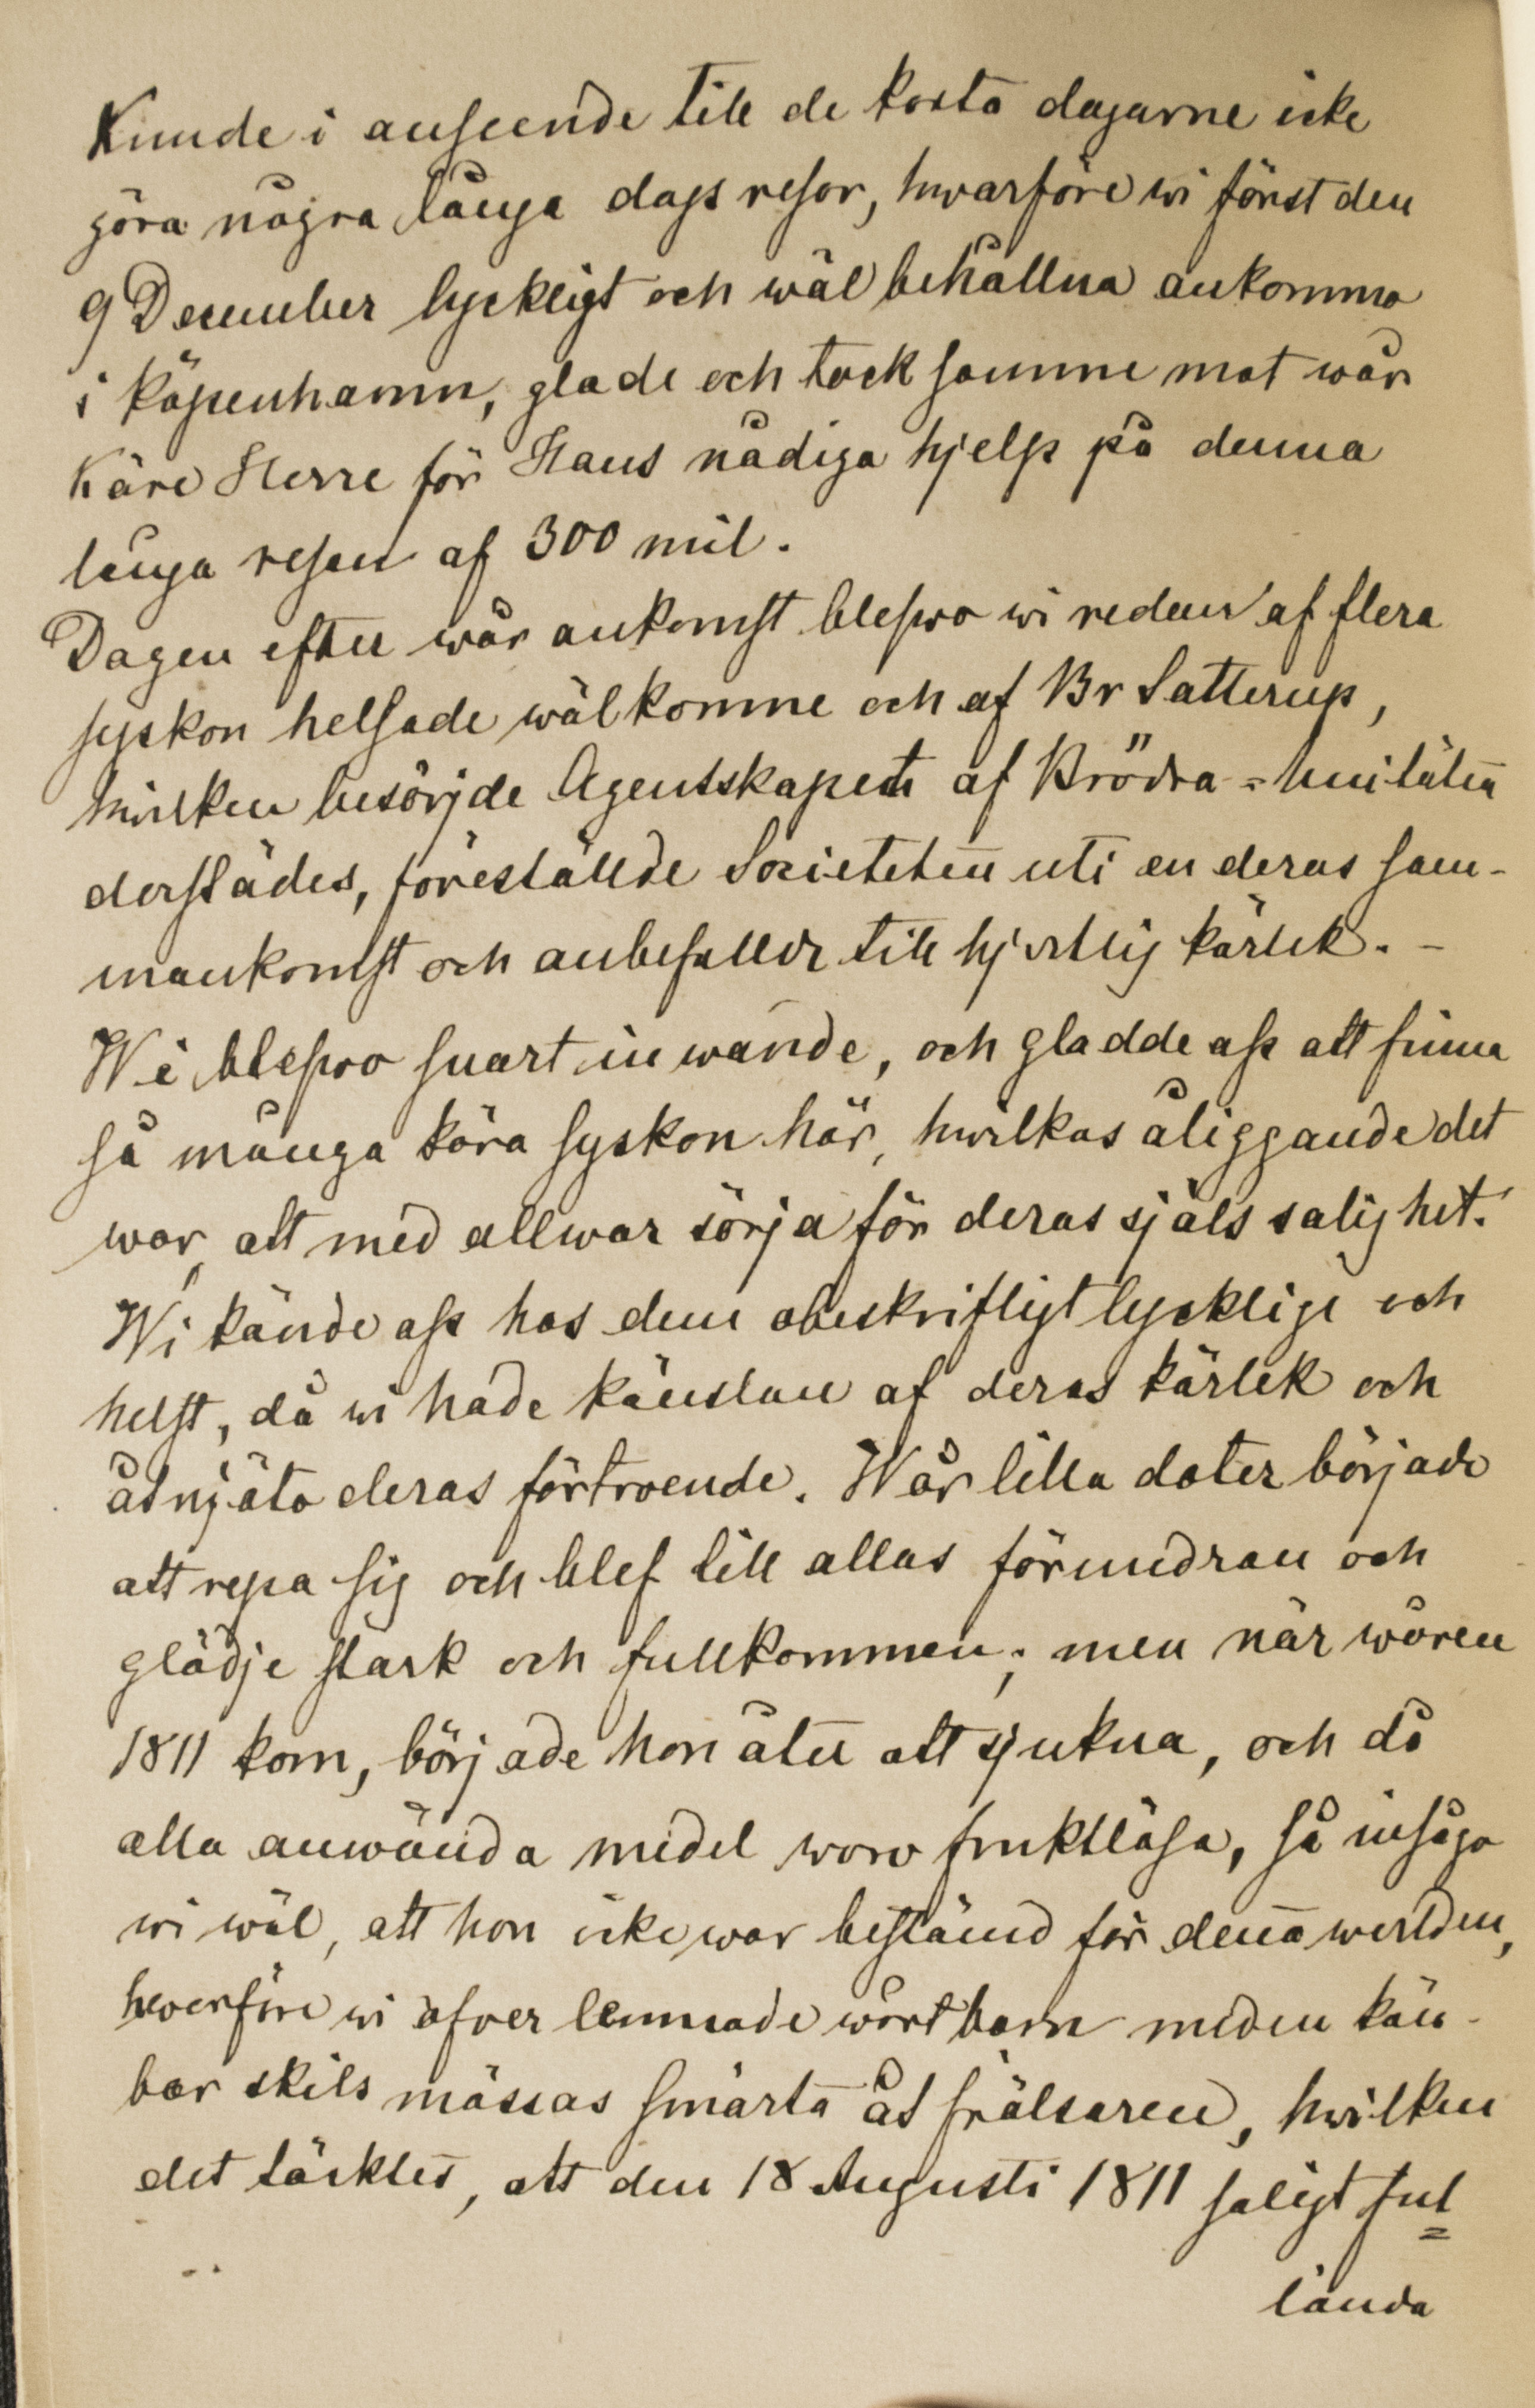 Kunde i anseende till de korta dagarne icke
göra några långa dags resor, hwarföre wi först den
9 December lyckligt och wäl behållna ankommo
i Köpenhamn, glade och tacksamme mot wår
Käre Herre för Hans nådiga hjelp på denna
långa resan af 300 mil.
Dagen efter wår ankomst blefwo wi redan af flera
syskon helsade wälkomne och af Br Satterup,
hwilken besörjde Agentskapet af Brödra-Unitäten
derstädes, föreställde Societeten uti en deras sam-
mankomst och anbefallde till hjertlig kärlek. –
Wi blefwo snart inwande, och gladde oss att finna
så många kära syskon här, hwilkas åliggande det
war, att med allwar sörja för deras själs salighet.
Wi kände oss hos dem obeskrifligt lycklige och
helst, då wi hade känslan af deras kärlek och
åtnjöto deras förtroende. Wår lilla doter började
att repa sig och blef till allas förundran och
glädje stark och fullkommen; men när wåren
1811 kom, började hon åter att sjukna, och då
alla anwända medel woro fruktlösa, så insågo
wi wäl, att hon icke war bestämd för denna werlden,
hwarföre wi öfwer lemnade wårt barn med en kän-
bar skils mässas smärta åt frälsaren, hwilken
det täcktes, att den 18 Augusti 1811 saligt ful=
lända